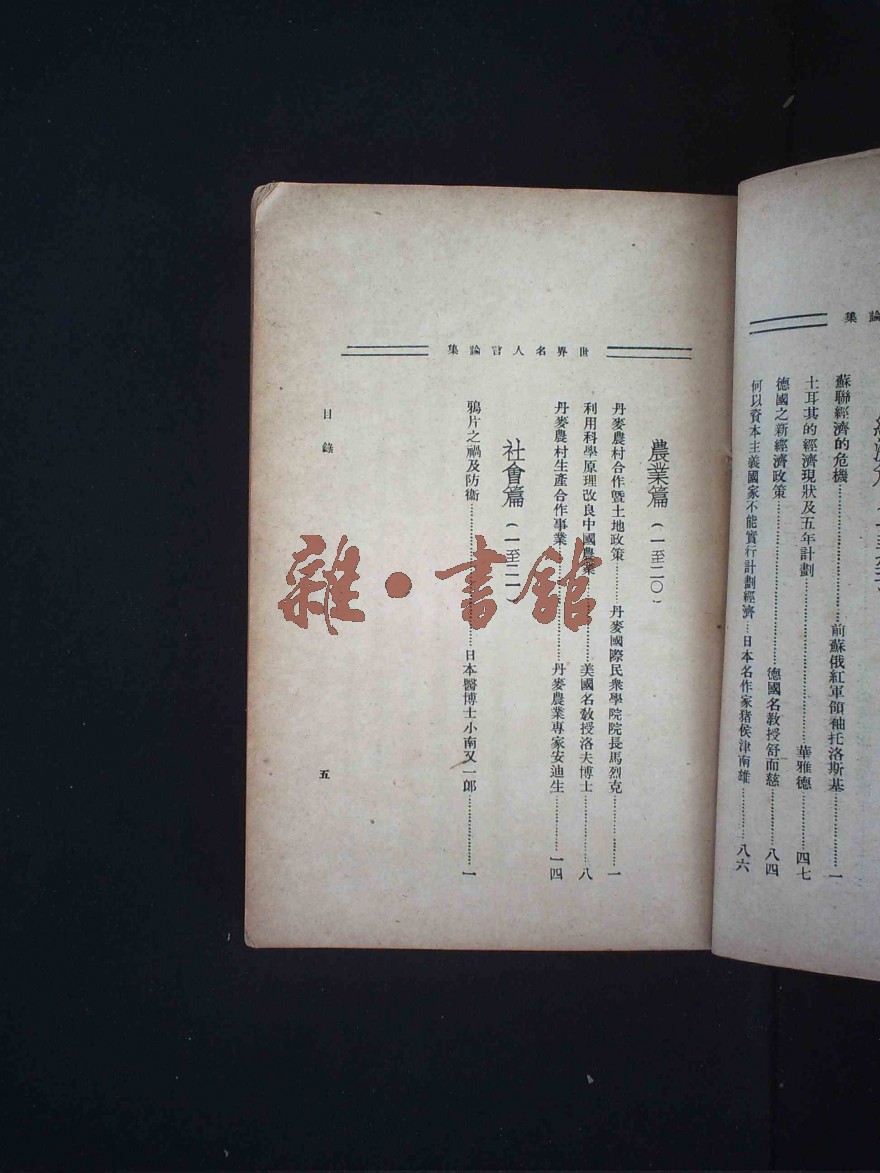 論集
蘇聯經濟的危機……前蘇俄紅軍領袖托洛斯基……一
土耳其的經濟現狀及五年計劃……華雅德……四七
德國之新經濟政策……德國名教授舒而慈……八四
何以資本主義國家不能實行計劃經濟…日本名作家猪侯津南雄……八六
世界名人言論集
農業篇(一至二〇)
丹麥農村合作暨土地政策……丹麥國際民衆學院院長馬烈克……一
利用科學原理改良中國農業……美國名教授洛夫博士……八
丹麥農村生產合作事業……丹麥農業專家安迪生……一四
社會篇(一至二一)
鴉片之禍及防衞……日本醫博士小南又一郎……一
目錄
五
雜·書館